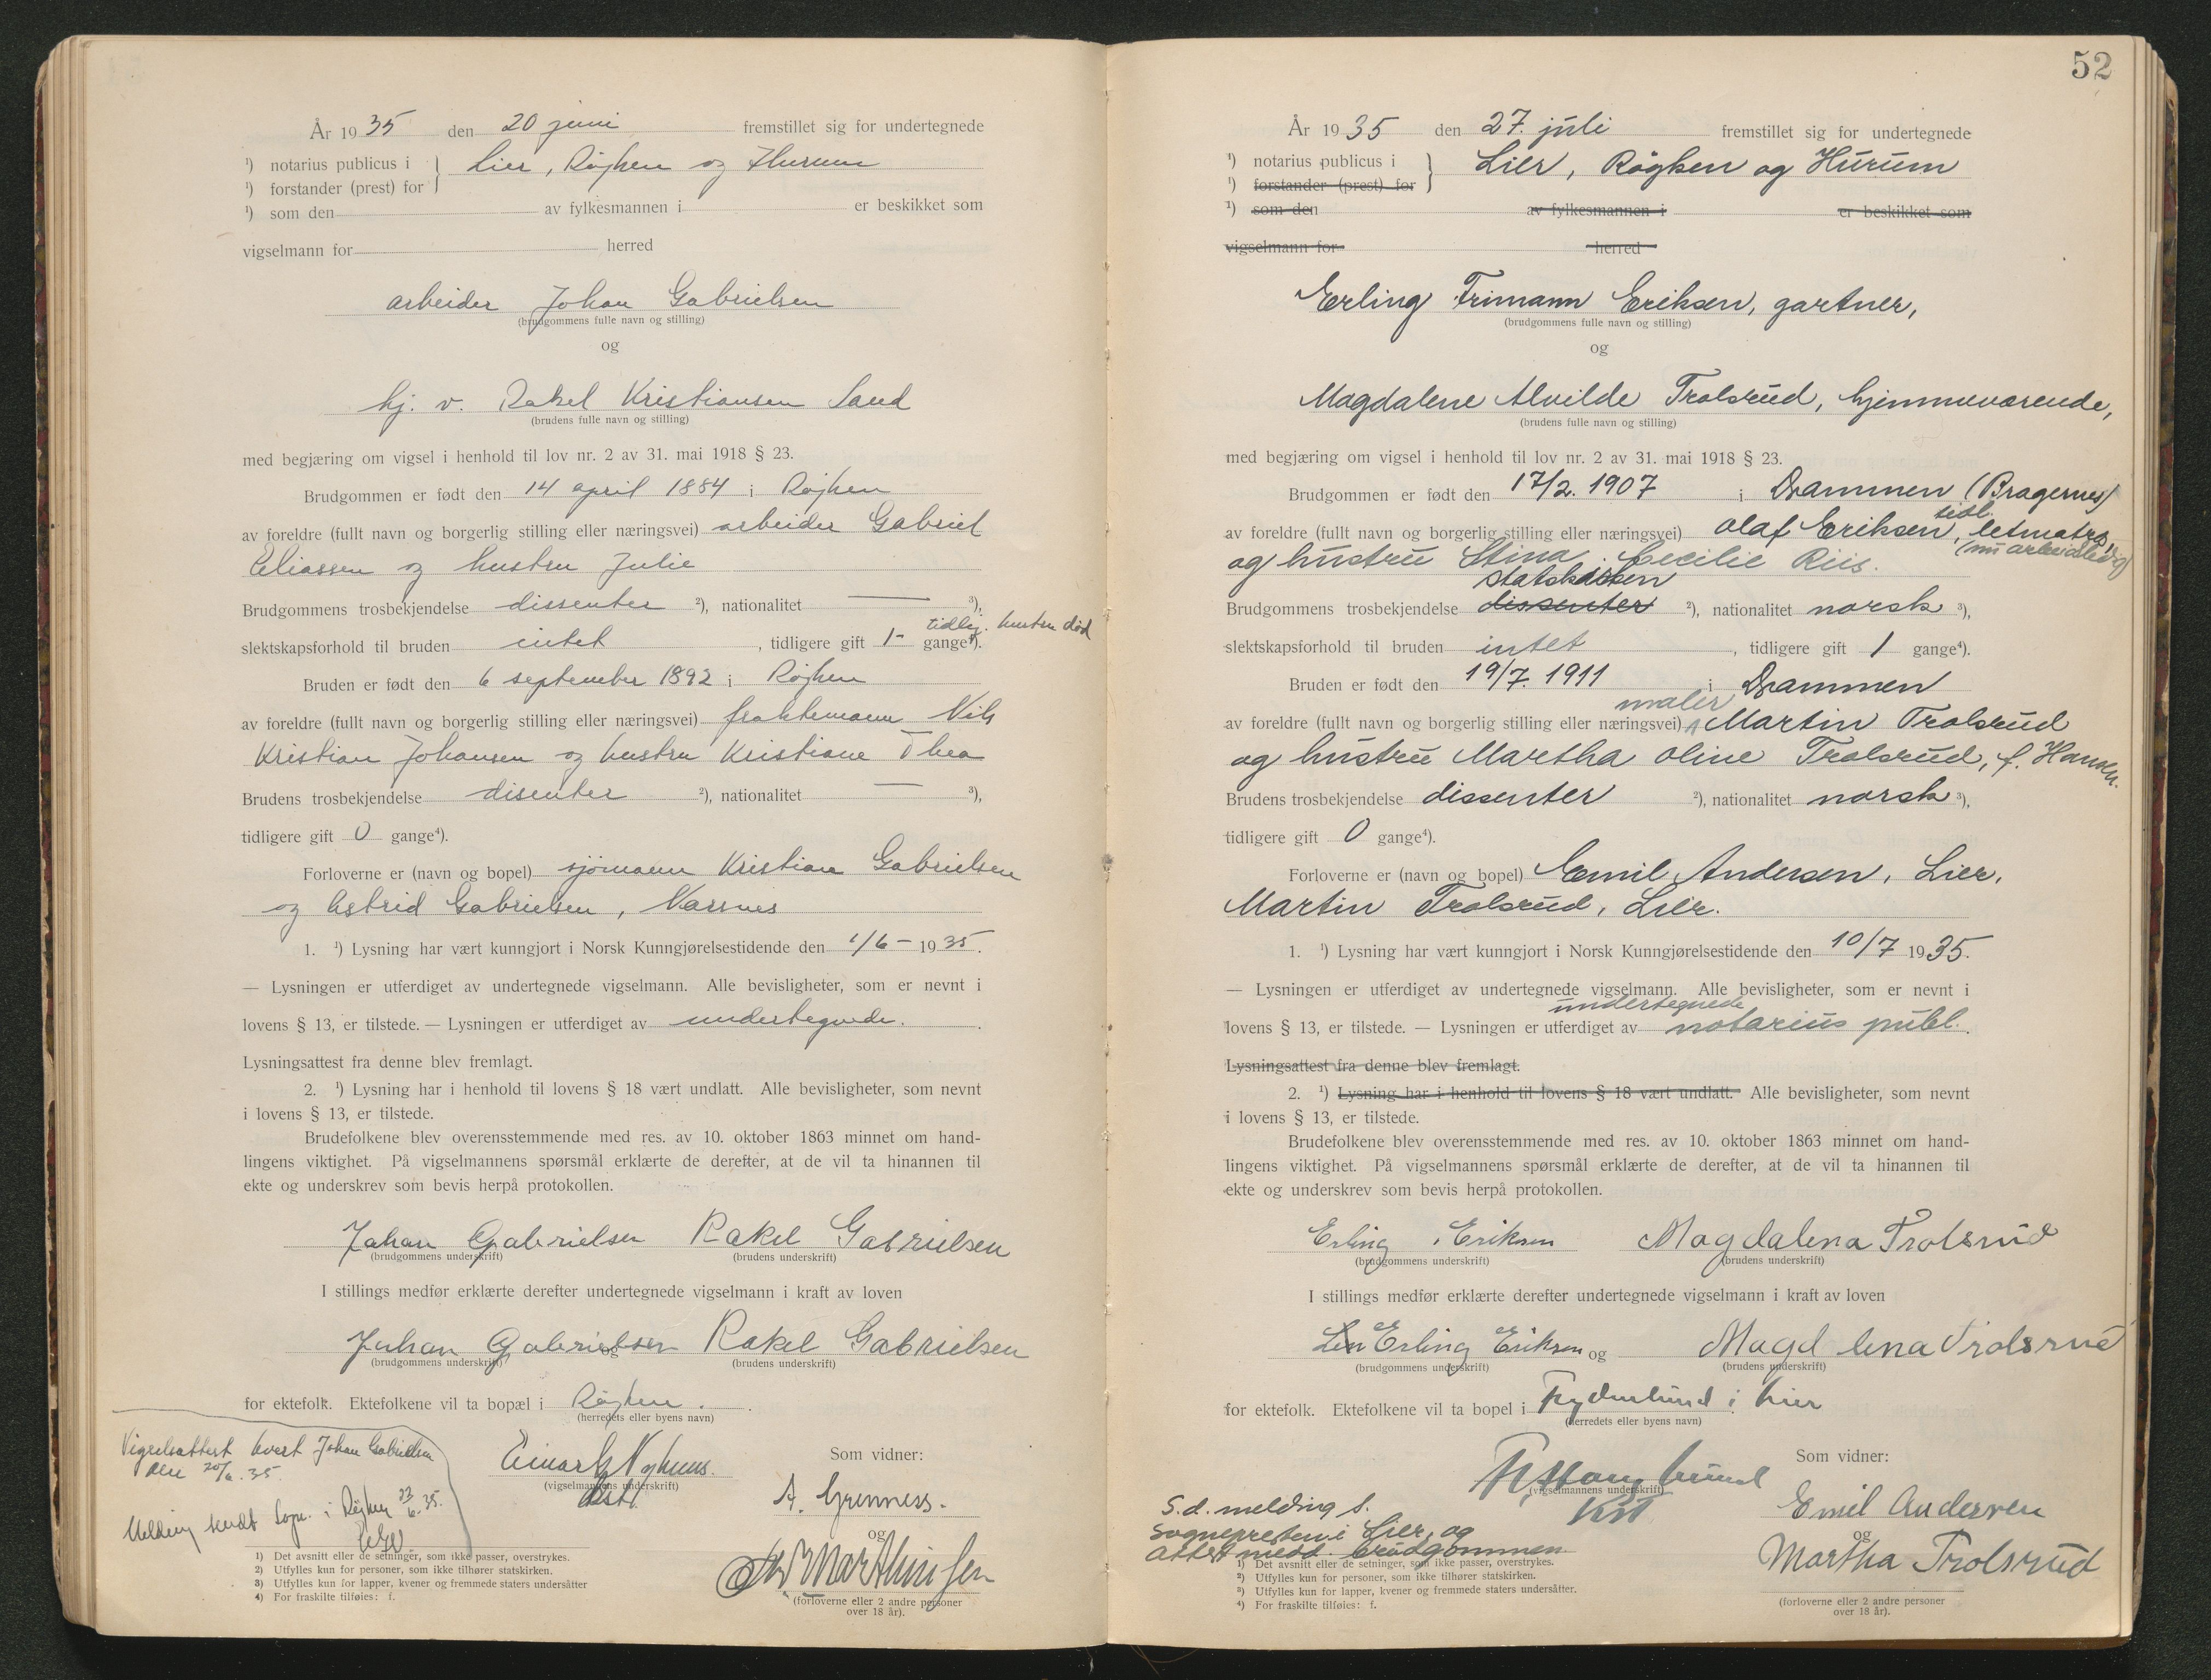 År 1935 den 20 juni fremstillet sig for undertegnede
¹) notarius publicus i } Lier, Røyken og Hurum
¹) forstander (prest) for
¹) som den av fylkesmannen i er beskikket som
vigselmann for herred
arbeider Johan Gabrielsen
(brudgommens fulle navn og stilling)
og
hj. v. Rakel Kristiansen Sand
(brudens fulle navn og stilling)
med begjæring om vigsel i henhold til lov nr. 2 av 31. mai 1918 § 23.
Brudgommen er født den 14 april 1884 i Røyken
av foreldre (fullt navn og borgerlig stilling eller næringsvei) arbeider Gabriel
Eliassen og hustru Julie
Brudgommens trosbekjendelse dissenter ²), nationalitet — ³),
tidlig. hustru død
slektskapsforhold til bruden intet, tidligere gift 1- gange⁴).
Bruden er født den 6 september 1892 i Røyken
av foreldre (fullt navn og borgerlig stilling eller næringsvei) fraktemann Nils
Kristian Johansen og hustru Kristiane Thea
Brudens trosbekjendelse disenter ²), nationalitet — ³),
tidligere gift 0 gange⁴).
Forloverne er (navn og bopel) sjömann Kristian Gabrielsen
og Astrid Gabrielsen, Nærsnes
1. ¹) Lysning har vært kunngjort i Norsk Kunngjørelsestidende den 1/6 - 1935.
— Lysningen er utferdiget av undertegnede vigselmann. Alle bevisligheter, som er nevnt i
lovens § 13, er tilstede. — Lysningen er utferdiget av undertegnede.
Lysningsattest fra denne blev fremlagt.
2. ¹) Lysning har i henhold til lovens § 18 vært undlatt. Alle bevisligheter, som nevnt
i lovens § 13, er tilstede.
Brudefolkene blev overensstemmende med res. av 10. oktober 1863 minnet om hand-
lingens viktighet. På vigselmannens spørsmål erklærte de derefter, at de vil ta hinannen til
ekte og underskrev som bevis herpå protokollen.
Johan Gabrielsen Rakel Gabrielsen
(brudgommens underskrift) (brudens underskrift)
I stillings medfør erklærte derefter undertegnede vigselmann i kraft av loven
Johan Gabrielsen og Rakel Gabrielsen
(brudgommens underskrift) (brudens underskrift)
for ektefolk. Ektefolkene vil ta bopæl i Røyken.
(herredets eller byens navn)
Vigselsattest Johan Gabrielsen
den 20/6.35.
Melding sendt Sogn. i Røyken 23/6.35.
Einar
(vigselmannens underskrift)
Som vidner:
A. Grenness.
og
Marthinsen
(forloverne eller 2 andre personer
over 18 år).
1) Det avsnitt eller de setninger, som ikke passer, overstrykes.
2) Utfylles kun for personer, som ikke tilhører statskirken.
3) Utfylles kun for lapper, kvener og fremmede staters undersåtter
4) For fraskilte tilføies: f.
52
År 1935 den 27. juli fremstillet sig for undertegnede
¹) notarius publicus i } Lier, Røyken og Hurum
¹) forstander (prest) for
¹) som den av fylkesmannen i er beskikket som
vigselmann for herred
Erling Frimann Eriksen, gartner,
(brudgommens fulle navn og stilling)
og
Magdalene Alvilde Trolsrud, hjemmeværende,
(brudens fulle navn og stilling)
med begjæring om vigsel i henhold til lov nr. 2 av 31. mai 1918 § 23.
Brudgommen er født den 17/2. 1907 i Drammen (Bragernes)
tidl.
av foreldre (fullt navn og borgerlig stilling eller næringsvei) Olaf Eriksen, letmatros,
(nu arbeidsledig)
og hustru Stina Cecilie Riis.
statskirken
Brudgommens trosbekjendelse dissenter ²), nationalitet norsk ³),
slektskapsforhold til bruden intet, tidligere gift 1 gange⁴).
Bruden er født den 19/7. 1911 i Drammen
maler
av foreldre (fullt navn og borgerlig stilling eller næringsvei) Martin Trolsrud
og hustru Martha Oline Trolsrud, f. Hansen.
Brudens trosbekjendelse dissenter ²), nationalitet norsk ³),
tidligere gift 0 gange⁴).
Forloverne er (navn og bopel) Emil Andersen, Lier,
Martin Trolsrud, Lier.
1. ¹) Lysning har vært kunngjort i Norsk Kunngjørelsestidende den 10/7 1935.
— Lysningen er utferdiget av undertegnede vigselmann. Alle bevisligheter, som er nevnt i
undertegnede
lovens § 13, er tilstede. — Lysningen er utferdiget av notarius publ.
Lysningsattest fra denne blev fremlagt.
2. ¹) Lysning har i henhold til lovens § 18 vært undlatt. Alle bevisligheter, som nevnt
i lovens § 13, er tilstede.
Brudefolkene blev overensstemmende med res. av 10. oktober 1863 minnet om hand-
lingens viktighet. På vigselmannens spørsmål erklærte de derefter, at de vil ta hinannen til
ekte og underskrev som bevis herpå protokollen.
Erling Eriksen Magdalena Trolsrud
(brudgommens underskrift) (brudens underskrift)
I stillings medfør erklærte derefter undertegnede vigselmann i kraft av loven
Erling Eriksen og Magdalena Trolsrud
(brudgommens underskrift) (brudens underskrift)
for ektefolk. Ektefolkene vil ta bopel i Frydenlund i Lier
(herredets eller byens navn)
(vigselmannens underskrift)
S.d. melding s.
sognepresten i Lier, og
attest medd. brudgommen
Som vidner:
Emil Andersen
og
Martha Trolsrud
(forloverne eller 2 andre personer
over 18 år).
¹) Det avsnitt eller de setninger, som ikke passer, overstrykes.
²) Utfylles kun for personer, som ikke tilhører statskirken.
³) Utfylles kun for lapper, kvener og fremmede staters undersåtter.
⁴) For fraskilte tilføies: f.